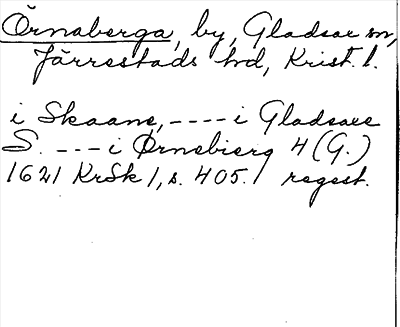 Örnaberga, by, Gladsax sn,
Järrestads hd, Krist. l.
i Skaane, ---- i Gladsaxe
S. --- i Ørnebierg 4 (G.)
1621 KrSk 1, s. 405. regest.